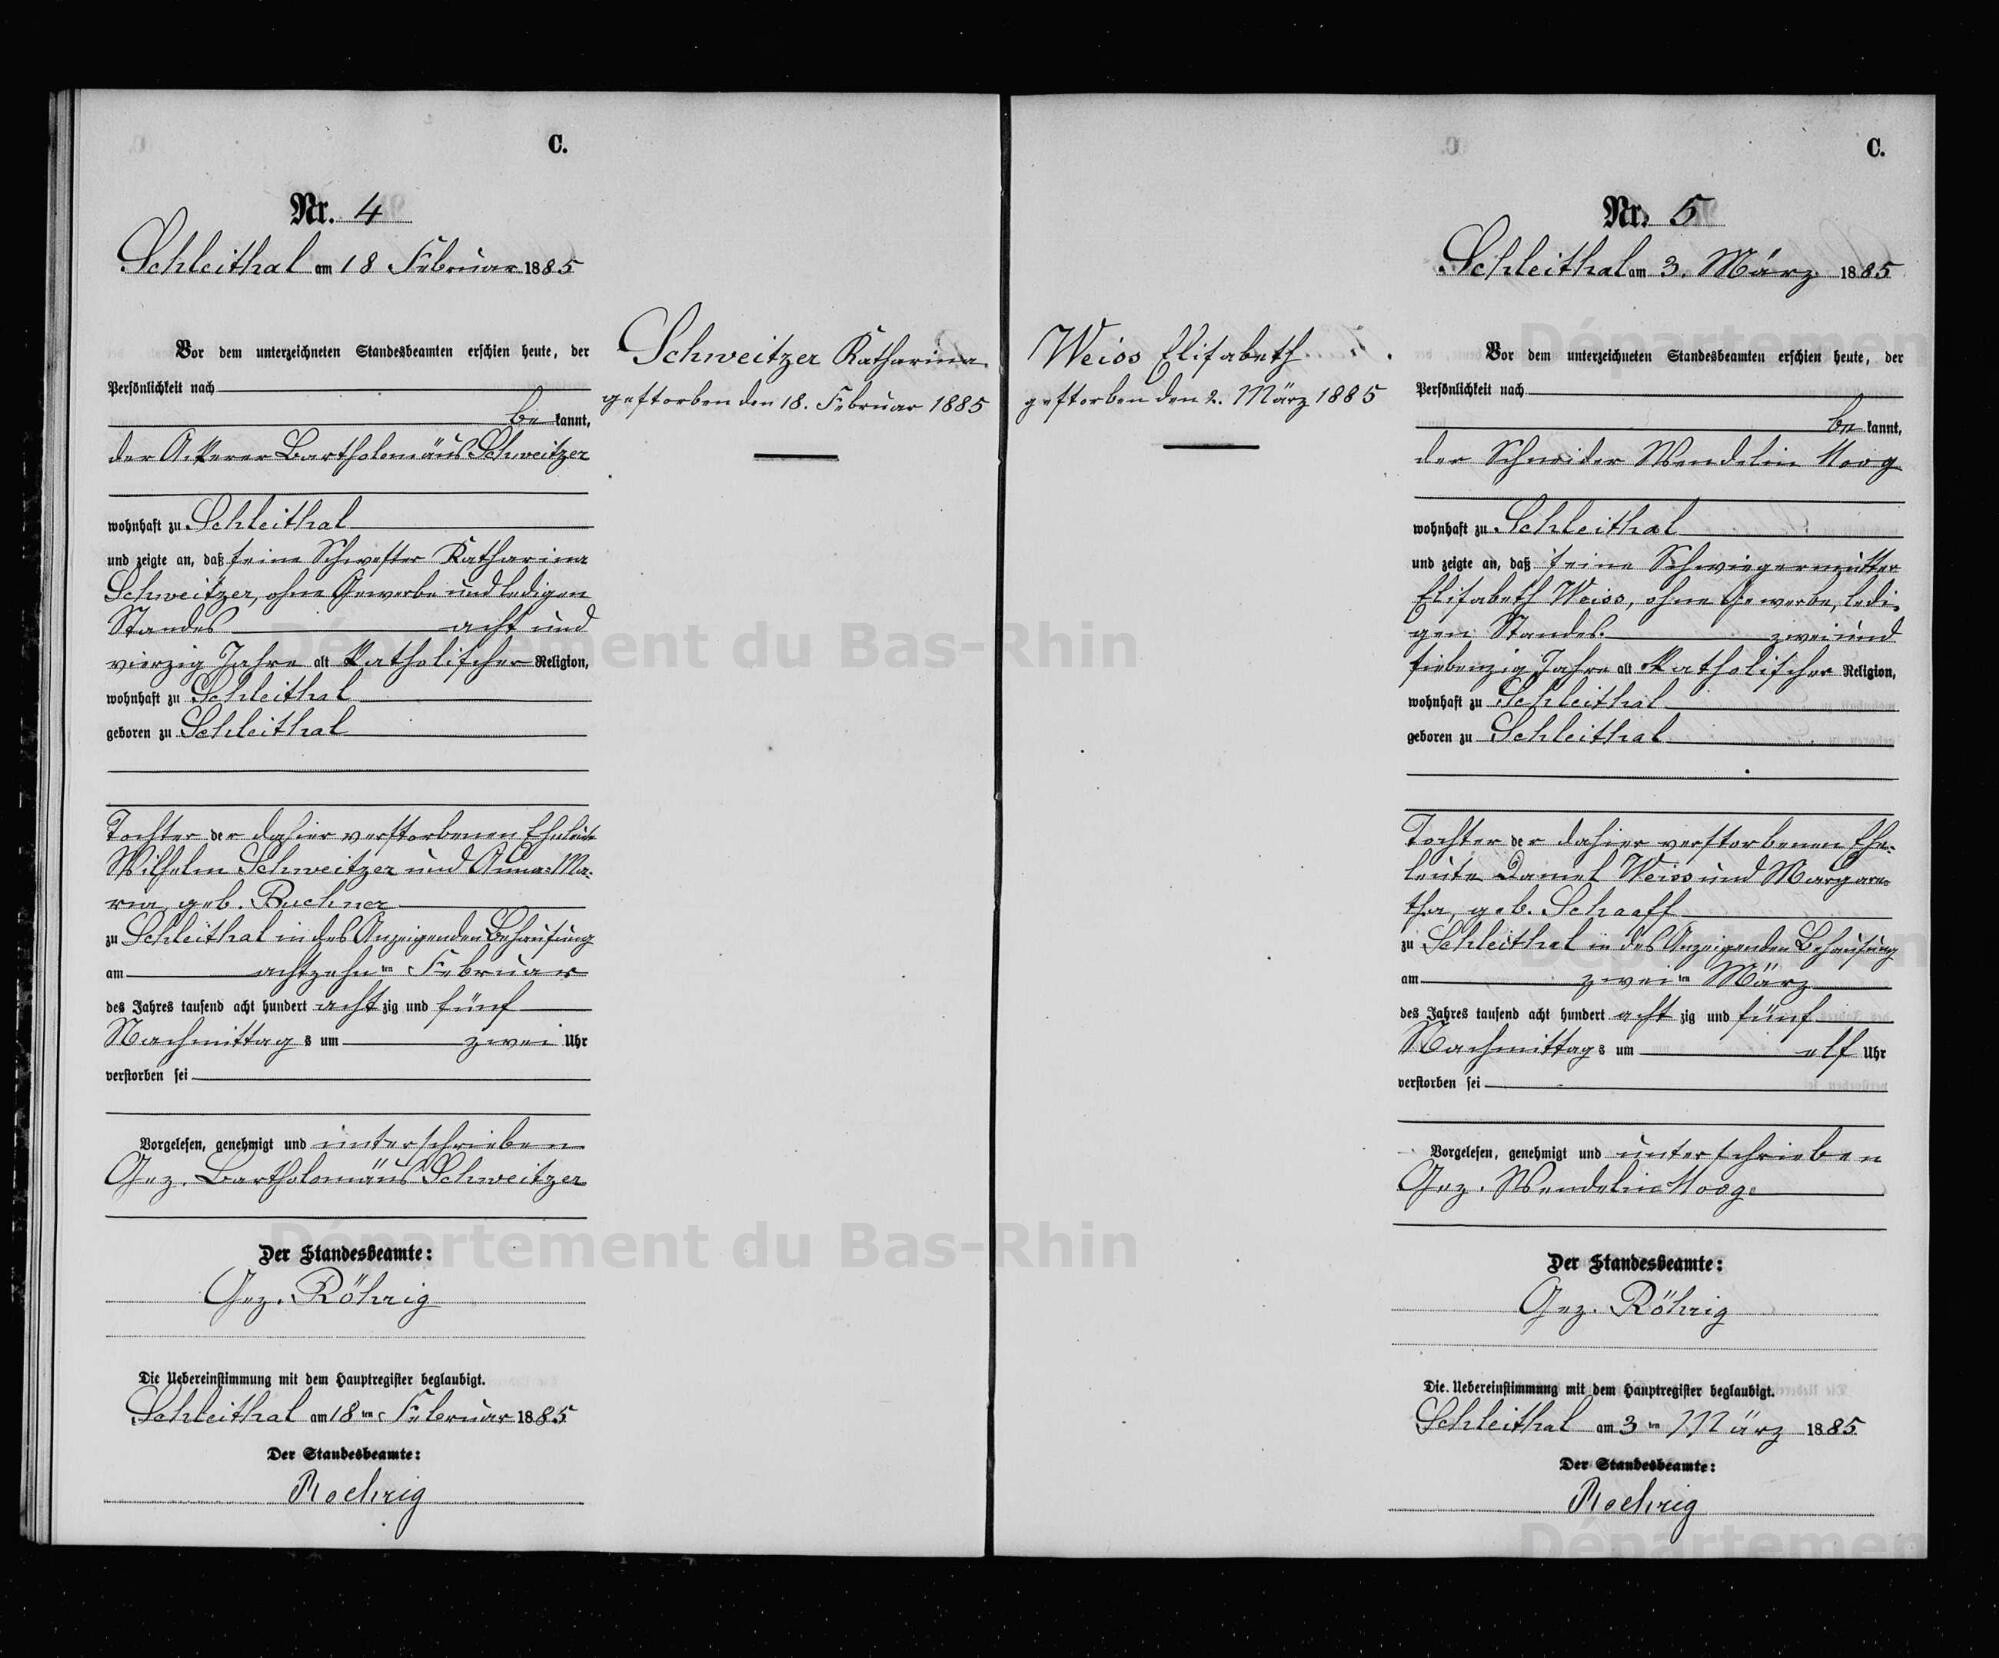 C.
Nr. 4
Schleithal am 18 Februar 1885
Vor dem unterzeichneten Standesbeamten erschien heute, der
Persönlichkeit nach
be kannt,
der Ackerer Bartholomäus Schweitzer
wohnhaft zu Schleithal
und zeigte an, daß seine Schwester Katharina
Schweitzer, ohne Gewerbe und ledigen
Standes acht und
vierzig Jahre alt katholischer Religion,
wohnhaft zu Schleithal
geboren zu Schleithal
Tochter der dahier verstorbenen Eheleute
Wilhelm Schweitzer und Anna Ma-
ria, geb. Buchner
zu Schleithal in des Anzeigenden Behausung
am achtzehn ten Februar
des Jahres tausend acht hundert acht zig und fünf
Nachmittag s um zwei Uhr
verstorben sei
Vorgelesen, genehmigt und unterschrieben
Gez. Bartholomäus Schweitzer
Der Standesbeamte:
Gez. Röhrig
Die Uebereinstimmung mit dem Hauptregister beglaubigt.
Schleithal am 18 ten Februar 1885
Der Standesbeamte:
Roehrig
Schweitzer Katharina
gestorben den 18. Februar 1885
Weiss Elisabeth
gestorben den 2. März 1885
C.
Nr. 5
Schleithal am 3. März 1885
Vor dem unterzeichneten Standesbeamten erschien heute, der
Persönlichkeit nach
be kannt,
der Schneider Wendelin Moog
wohnhaft zu Schleithal
und zeigte an, daß seine Schwiegermutter
Elisabeth Weiss, ohne Gewerbe, ledi-
gen Standes. zwei und
siebenzig Jahre alt katholischer Religion,
wohnhaft zu Schleithal
geboren zu Schleithal
Tochter der dahier verstorbenen Ehe-
leute Daniel Weiss und Margare-
tha, geb. Schaaff
zu Schleithal in des Anzeigenden Behausung
am zwei ten März
des Jahres tausend acht hundert acht zig und fünf
Nachmittag s um elf Uhr
verstorben sei
Vorgelesen, genehmigt und unterschrieben
Gez. Wendelin Moog
Der Standesbeamte:
Gez. Röhrig
Die Uebereinstimmung mit dem Hauptregister beglaubigt.
Schleithal am 3 ten März 1885
Der Standesbeamte:
Roehrig
Département du Bas-Rhin
Département du Bas-Rhin
Départemen
Départemen
Départemen